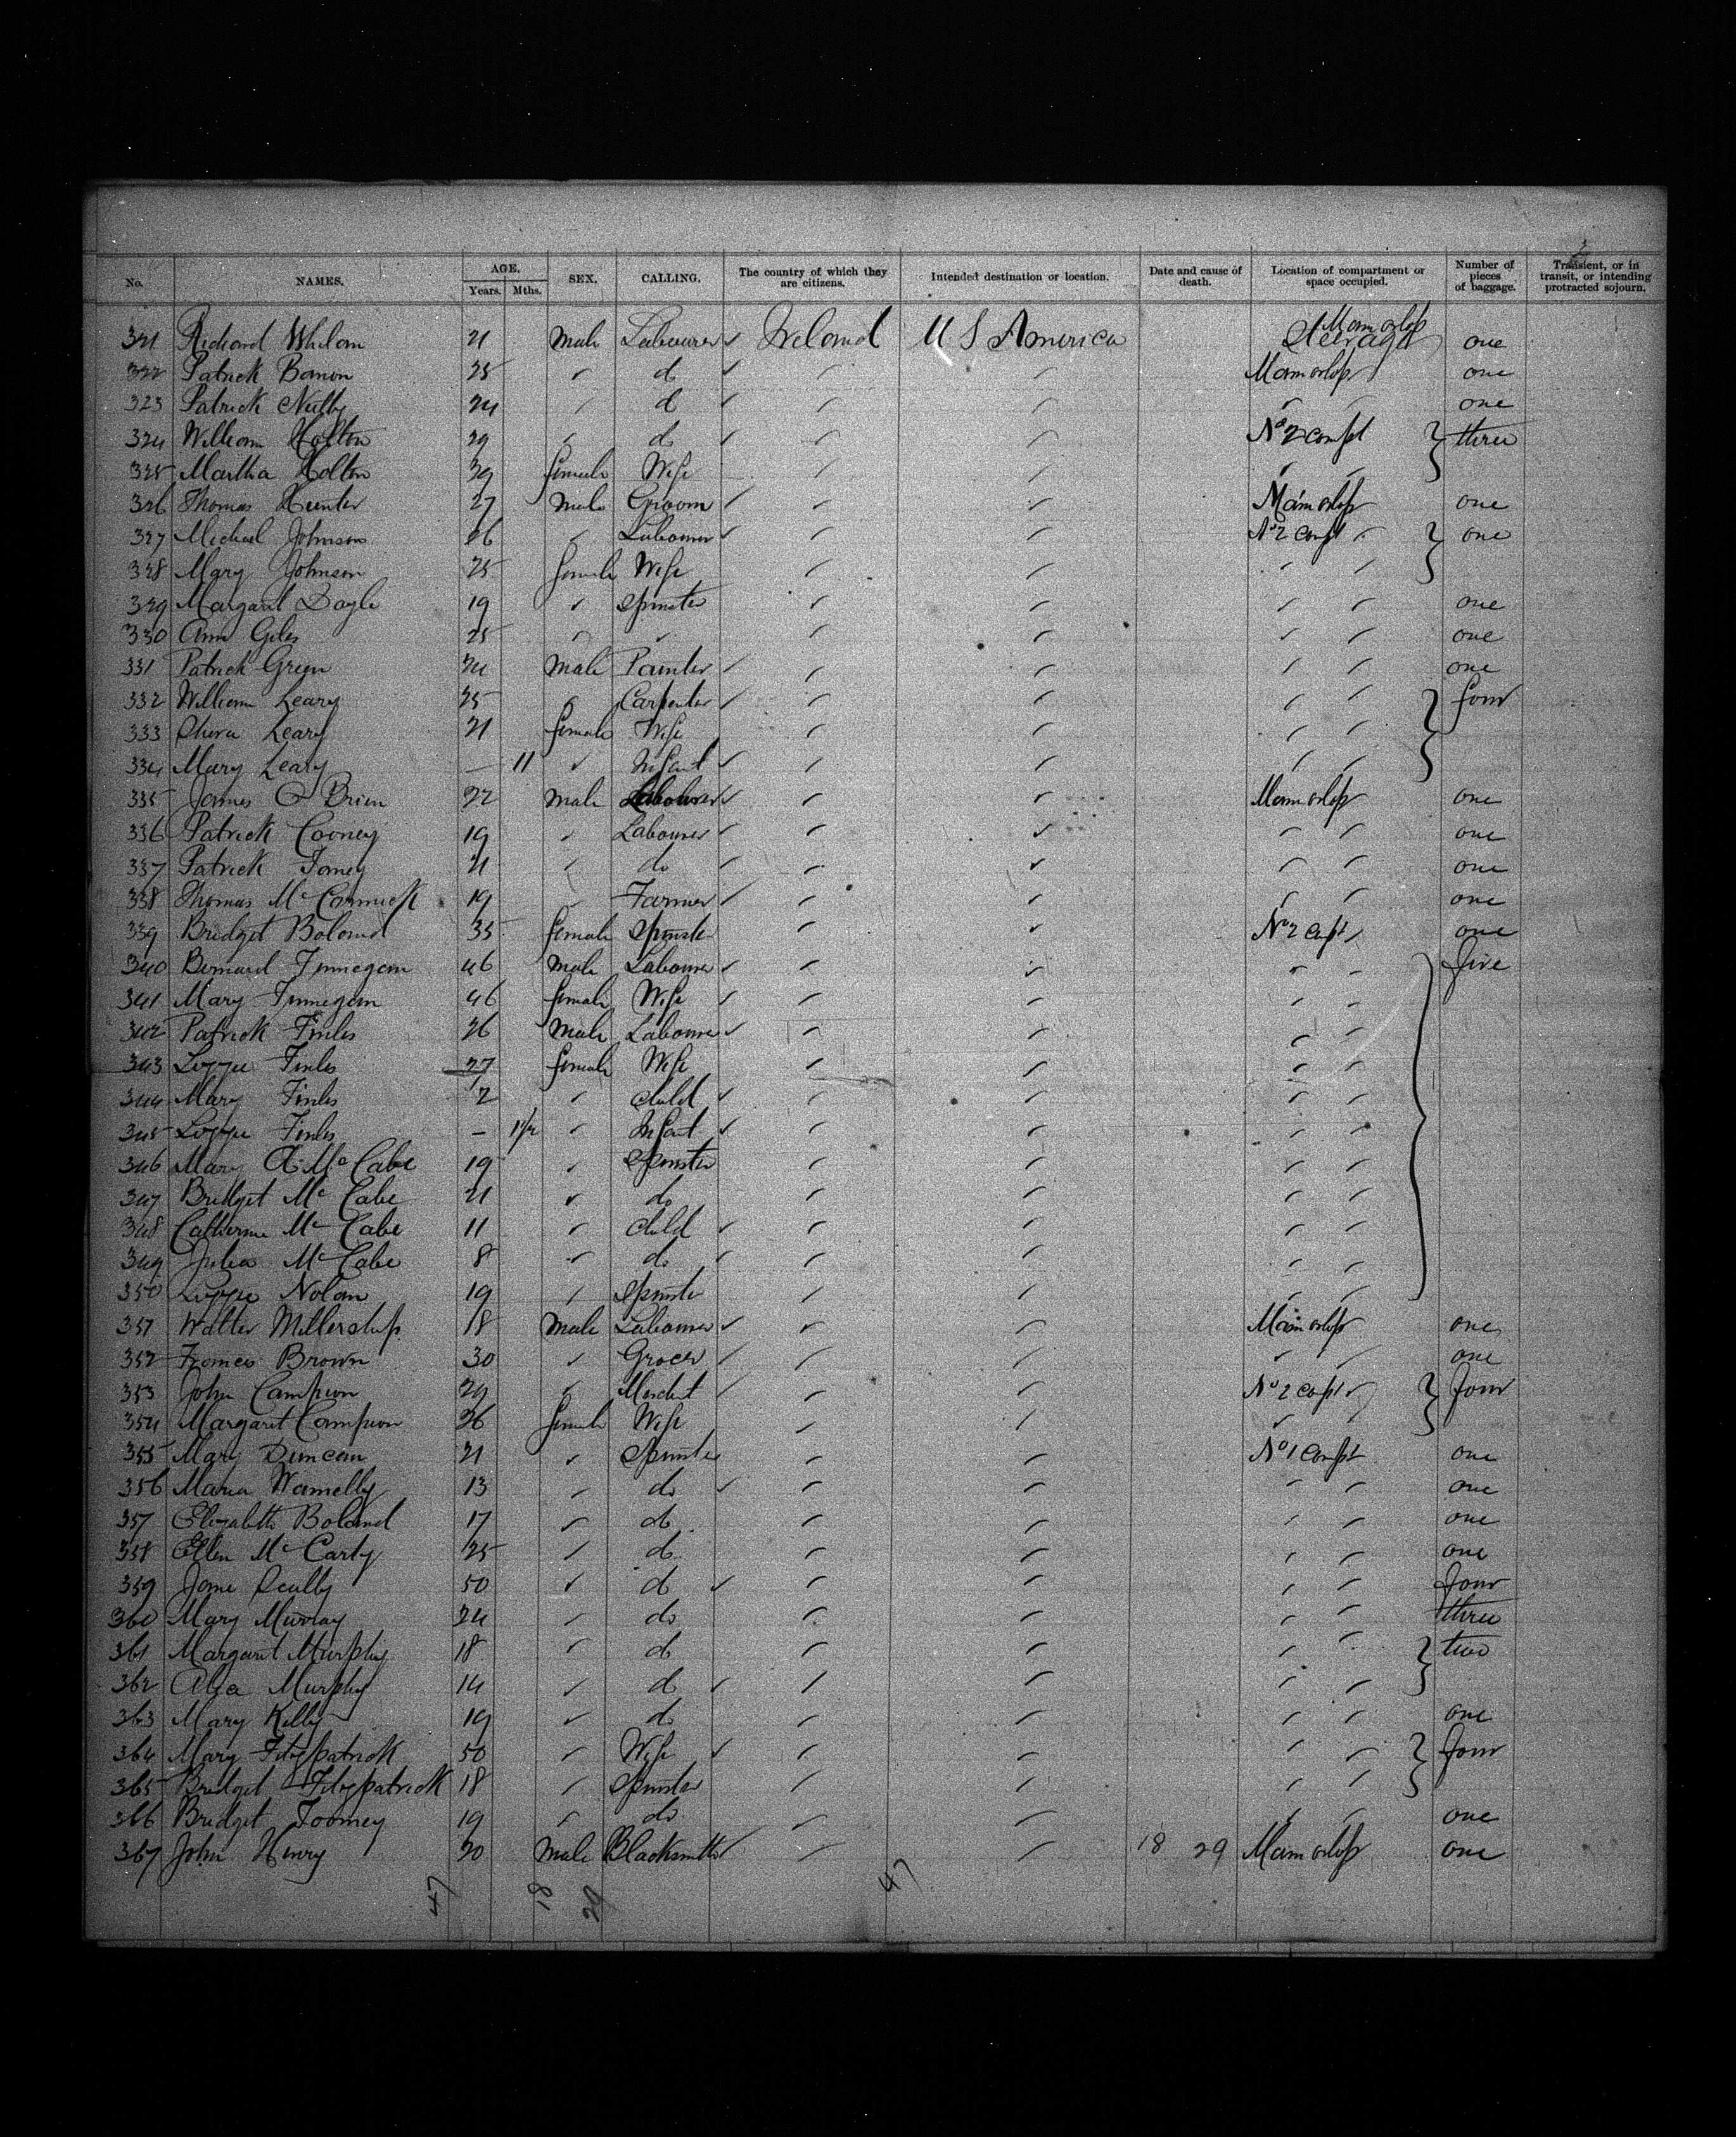 No. NAMES. AGE. Years. Mths. SEX. CALLING. The country of which they are citizens. Intended destination or location. Date and cause of death. Location of compartment or space occupied. Number of pieces of baggage. Transient, or in transit, or intending protracted sojourn.
321 Richard Whelan 21 Male Labourer Ireland U S America Main orlop Steerage one
322 Patrick Banon 25 " d " " Main orlop one
323 Patrick Nulty 24 " d " " " " one
324 William Holton 29 " d " " No 2 compt three
325 Martha Holton 29 female Wife " " " "
326 Thomas Hunter 27 male Groom " " Main orlop one
327 Michael Johnson 26 " Labourer " " No 2 compt one
328 Mary Johnson 25 female Wife " " " "
329 Margaret Doyle 19 " Spinster " " " " one
330 Ann Giles 25 " " " " " " one
331 Patrick Green 24 male Painter " " " " one
332 William Leary 25 " Carpenter " " " " four
333 Leary 21 female Wife " " " "
334 Mary Leary — 11 " Infant " " " "
335 James O Brien 22 male Labourer " " Main orlop one
336 Patrick Cooney 19 " Labourer " " " " one
337 Patrick 21 " do " " " " one
338 Thomas McCormick 19 " Farmer " " " " one
339 Bridget Boland 35 female Spinster " " No 2 compt one
340 Bernard Finnegan 46 male Labourer " " " " five
341 Mary Finnegan 46 female Wife " " " "
342 Patrick Finles 26 male Labourer " " " "
343 Lizzie Finles 27 female Wife " " " "
344 Mary Finles 2 " child " " " "
345 Lizzie Finles — 1½ " Infant " " " "
346 Mary A McCabe 19 " Spinster " " " "
347 Bridget McCabe 21 " do " " " "
348 Catherine McCabe 11 " child " " " "
349 Julia McCabe 8 " do " " " "
350 Lizzie Nolan 19 " Spinster " " " "
351 Walter Millership 18 male Labourer " " Main orlop one
352 Frances Brown 30 " Grocer " " " " one
353 John Campion 29 " Merchant " " No 2 compt four
354 Margaret Campion 26 female Wife " " "
355 Mary Duncan 21 " Spinster " " No 1 compt one
356 Maria 13 " do " " " " one
357 Elizabeth Boland 17 " do " " " " one
358 Ellen McCarty 25 " do " " " " one
359 Jane Scully 50 " d " " " " four
360 Mary Murray 24 " do " " " " three
361 Margaret Murphy 18 " do " " " " two
362 Murphy 14 " d " " " "
363 Mary Kelly 19 " do " " " " one
364 Mary Fitzpatrick 50 " Wife " " " " four
365 Bridget Fitzpatrick 18 " Spinster " " " "
366 Bridget Toomey 19 " do " " " " one
367 John Henry 20 male Blacksmith " " 18 29 Main orlop one
47 18 29 47